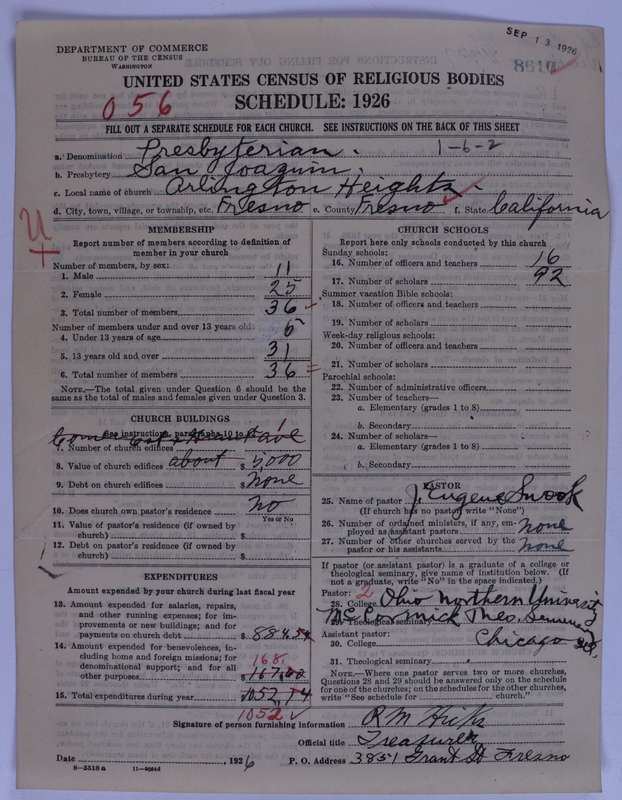 SEP 13 1926
DEPARTMENT OF COMMERCE
BUREAU OF THE CENSUS
WASHINGTON
8610
UNITED STATES CENSUS OF RELIGIOUS BODIES
SCHEDULE: 1926
056
FILL OUT A SEPARATE SCHEDULE FOR EACH CHURCH. SEE INSTRUCTIONS ON THE BACK OF THIS SHEET
a. Denomination Presbyterian. 1-6-2
b. Presbytery San Joaquin.
c. Local name of church Arlington Heights.
d. City, town, village, or township, etc. Fresno e. County Fresno f. State California
U
MEMBERSHIP
Report number of members according to definition of
member in your church
Number of members, by sex:
1. Male 11
2. Female 25
3. Total number of members 36
Number of members under and over 13 years old:
4. Under 13 years of age 5
5. 13 years old and over 31
6. Total number of members 36
NOTE.—The total given under Question 6 should be the
same as the total of males and females given under Question 3.
CHURCH BUILDINGS
See instructions, paragraphs 10 to
7. Number of church edifices 1
8. Value of church edifices about $ 5,000
9. Debt on church edifices $ None
10. Does church own pastor's residence No
Yes or No
11. Value of pastor's residence (if owned by
church) $
12. Debt on pastor's residence (if owned by
church) $
EXPENDITURES
Amount expended by church during last fiscal year
13. Amount expended for salaries, repairs,
and other running expenses; for im-
provements or new building; and for
payments on church debt $ 884.54
14. Amount expended for benevolences, in-
cluding home and foreign missions; for
denominational support; and for all
other purposes 168. $ 167.60
15. Total expenditures during year $ 1052.14
1052
CHURCH SCHOOLS
Report here only schools conducted by this church
Sunday schools:
16. Number of officers and teachers 16
17. Number of scholars 92
Summer vacation Bible schools:
18. Number of officers and teachers
19. Number of scholars
Week-day religious schools:
20. Number of officers and teachers
21. Number of scholars
Parochial schools:
22. Number of administrative officers
23. Number of teachers—
a. Elementary (grades 1 to 8)
b. Secondary
24. Number of scholars—
a. Elementary (grades 1 to 8)
b. Secondary
PASTOR
25. Name of pastor J. Eugene Snook
(If church has no pastor write "None")
26. Number of ordained ministers, if any, em-
ployed as assistant pastors none
27. Number of other churches served by the
pastor or his assistants none
If pastor (or assistant pastor) is a graduate of a college or
theological seminary, give name of institution below. (If
not a graduate, write "No" in the space indicated.)
Pastor: 2
28. College Ohio Northern University
29. Theological seminary McCormick Theo. Seminary
Assistant pastor: Chicago Ill.
30. College
31. Theological seminary
NOTE.—Where one pastor serves two or more churches,
Questions 28 and 29 should be answered only on the schedule
for one of the churches; on the schedules for the other churches,
write "See schedule for church."
Signature of person furnishing information R M Hicks
Official title Treasurer
Date , 1926 P. O. Address 3851 Grant St Fresno
8—5518 a